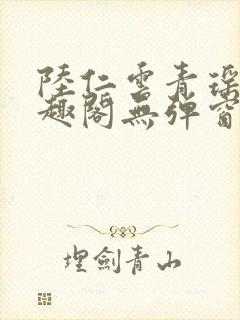 陸仁雲青瑤
趣閣無彈窗
埋劍青山